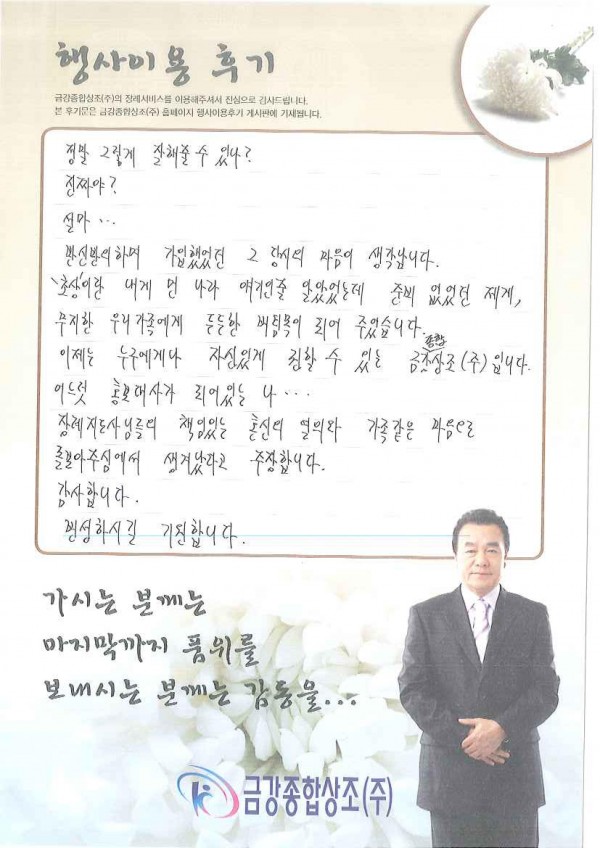 행사이용 후기
금강종합상조(주)의 장례서비스를 이용해주셔서 진심으로 감사드립니다.
본 후기문은 금강종합상조(주) 홈페이지 행사이용후기 게시판에 기재됩니다.
정말 그렇게 잘해줄 수 있나?
진짜야?
설마...
반신반의하며 가입했었던 그 당시의 마음이 생각납니다.
'초상'이란 내게 먼 나라 얘기인줄 알았었는데 준비 없었던 제게,
무지한 우리가족에게 든든한 버팀목이 되어 주었습니다.
이제는 누구에게나 자신있게 권할 수 있는 금강종합상조(주)입니다.
어느덧 홍보대사가 되어있는 나...
장례지도사님들의 책임있는 혼신의 열의와 가족같은 마음으로
돌보아주심에서 생겨났다고 주장합니다.
감사합니다.
번성하시길 기원합니다.
가시는 분께는
마지막까지 품위를
보내시는 분께는 감동을...
금강종합상조(주)